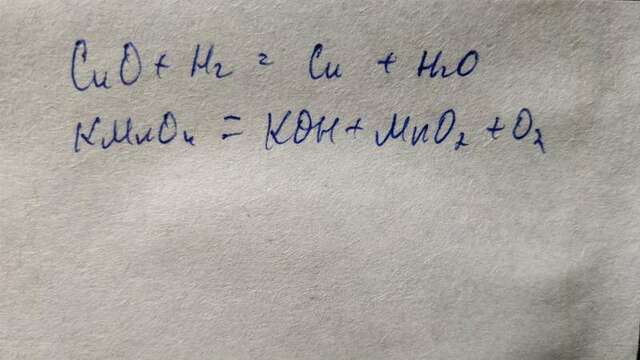 CuO + H2 = Cu + H2O
KMnO4 = KOH + MnO2 + O2